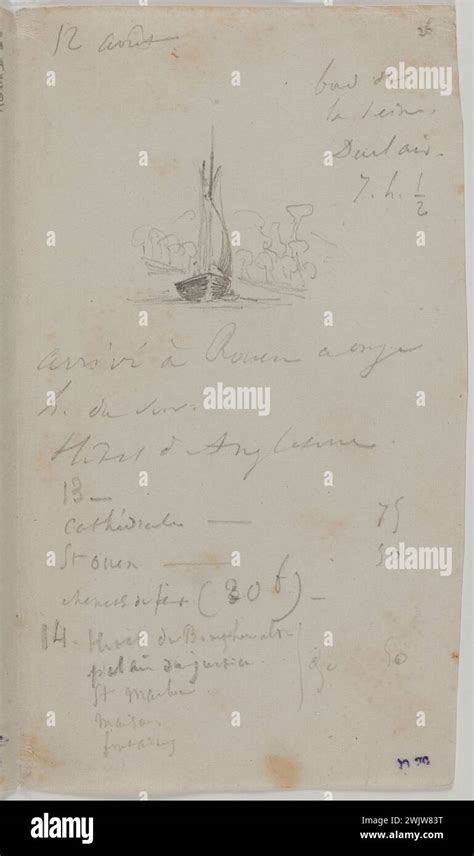 12 août
26
la Seine
Duclair.
7. h. 1/2
arrivé à Rouen a onze
h. du soir.
Hotel d'Angleterre.
13 —
cathédrale — 75
St Ouen —
chemin de fer (30 f) —
14 - Hotel du Bourgtheroulde
palais de justice 50
St Maclou
maison
fontaines
alamy
Image ID: 2WJW83T
www.alamy.com